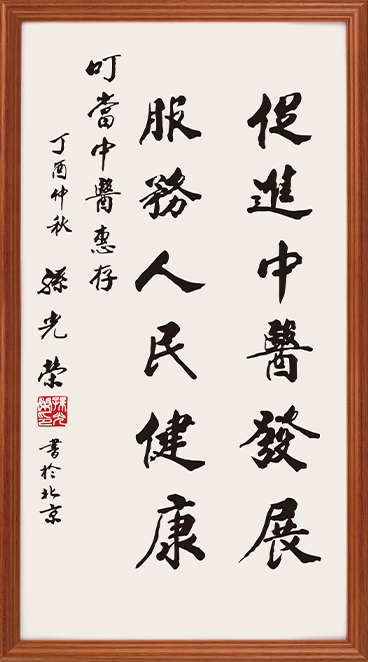 促進中醫發展
服務人民健康
叮當中醫惠存
丁酉仲秋 孫光榮 書於北京